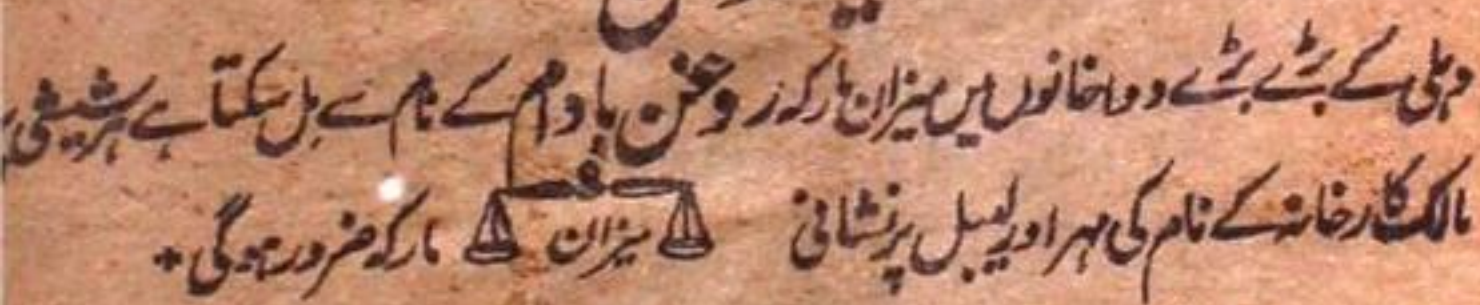 دہلی کے بڑے بڑے دواخانوں میں میزان مارکہ روغن بادام کے نام سے مل سکتا ہے ہر شیشی پر
مالک کارخانہ کے نام کی مہر اور لیبل پر نشانی میزان مارکہ ضرور ہوگی